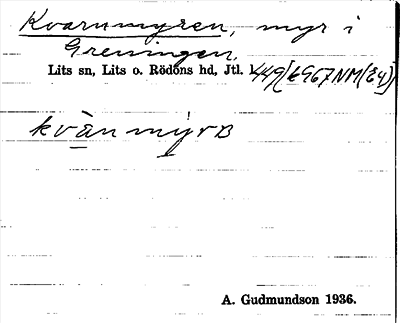 Kvarnmyren, myr i
Greningen,
Lits sn, Lits o. Rödöns hd, Jtl.
kvànmýrB
A. Gudmundson 1936.